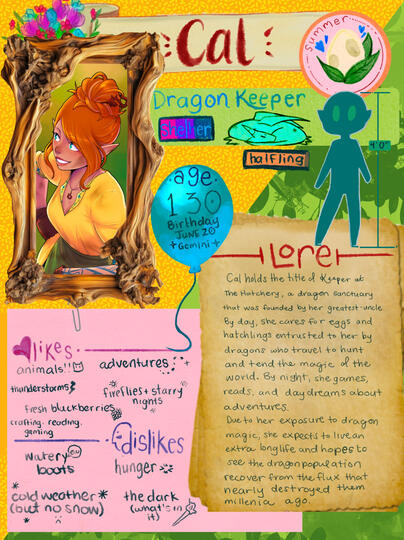 Cal
Summer
Dragon Keeper
she/her
halfling
4'0"
age
130
Birthday
JUNE 20
Gemini
Lore
Cal holds the title of Keeper at
The Hatchery, a dragon sanctuary
that was founded by her greatest-uncle.
By day, she cares for eggs and
hatchlings entrusted to her by
dragons who travel to hunt
and tend the magic of the
world. By night, she games,
reads, and daydreams about
adventures.
Due to her exposure to dragon
magic, she expects to live an
extra long life and hopes to
see the dragon population
recover from the flux that
nearly destroyed them
millenia ago.
likes
animals!!
adventures
thunderstorms
fireflies + starry
nights
fresh blackberries
crafting, reading,
gaming
dislikes
watery
boots
hunger
cold weather
(but no snow)
the dark
(what's in
it)